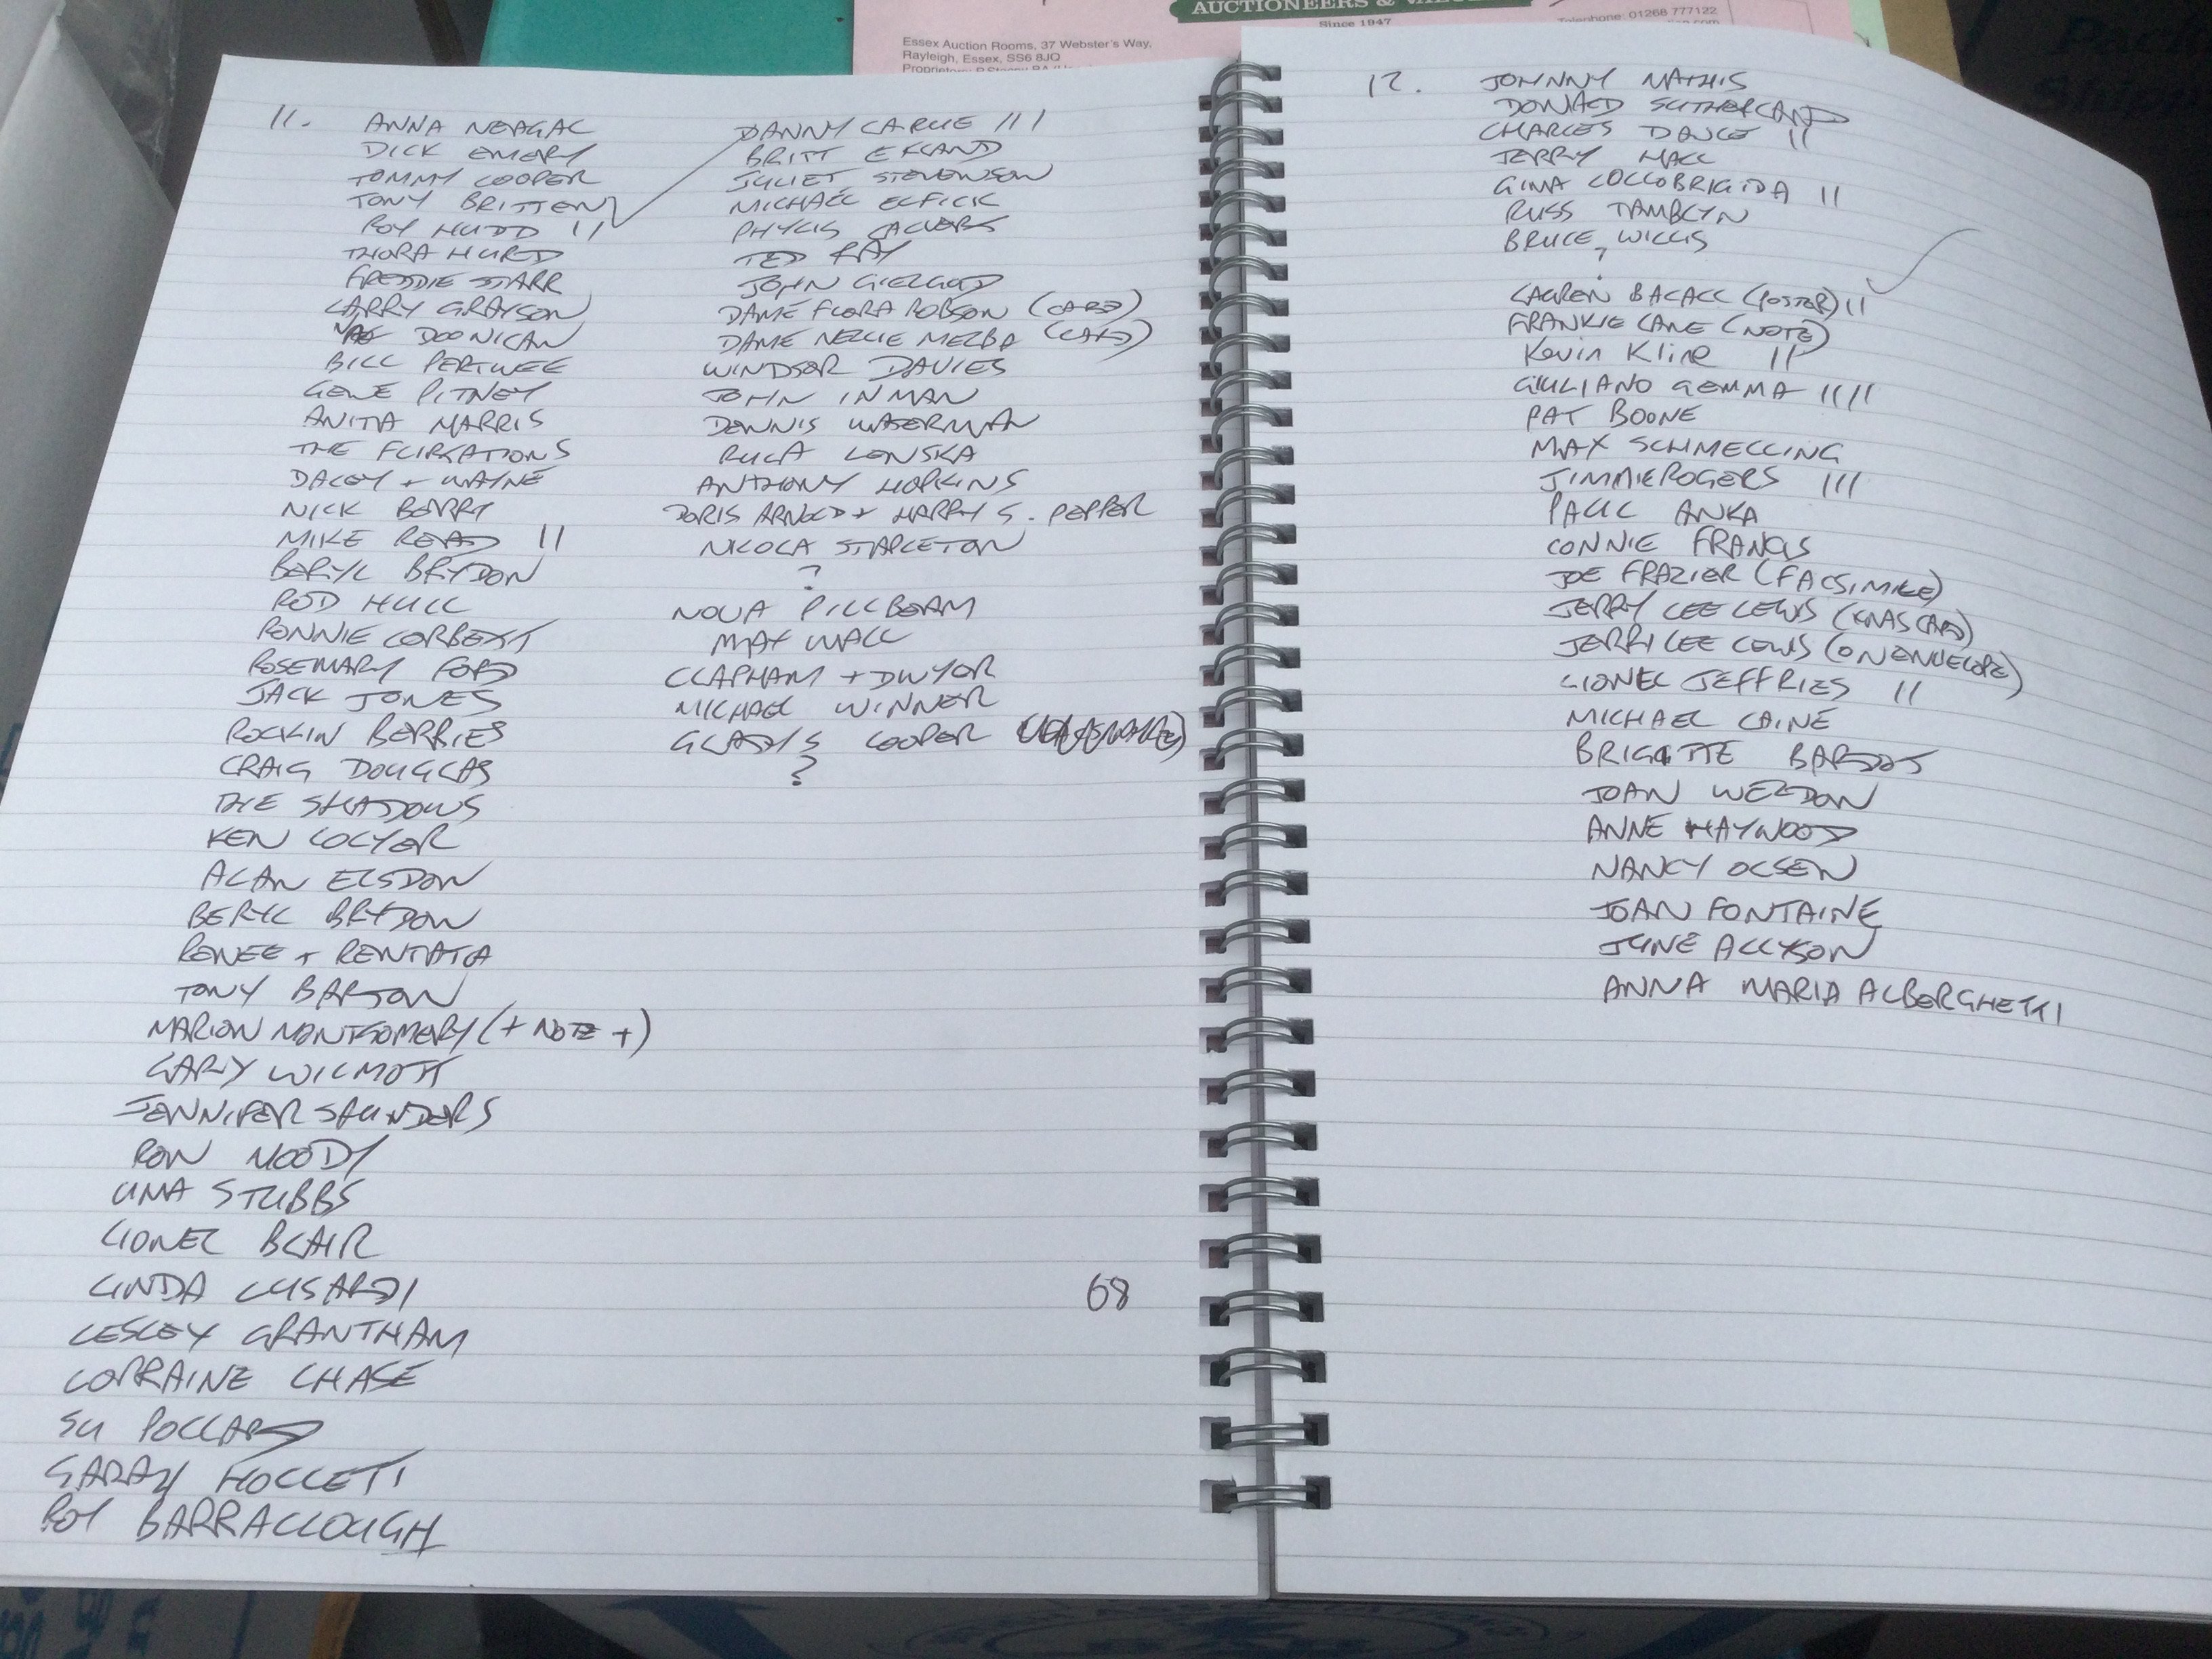 AUCTIONEERS &
Since 1947
Telephone: 01268 777122
Essex Auction Rooms, 37 Webster's Way,
Rayleigh, Essex, SS6 8JQ
11.
ANNA NEAGAL
DICK EMERY
TOMMY COOPER
TONY BRITTEN
ROY HUDD 11
THORA HURD
FREDDIE STARR
LARRY GRAYSON
DOONICAN
BILL PERTWEE
GENE PITNEY
ANITA HARRIS
THE FLIRTATIONS
DACEY + WAYNE
NICK BERRY
MIKE READ 11
BERYL BRYDON
ROD HULL
RONNIE CORBETT
ROSEMARY FORD
JACK JONES
ROCKIN BERRIES
CRAIG DOUGLAS
THE SHADOWS
KEN COLYER
ALAN ELSDON
BERYL BRYDON
RENEE + RENTATA
TONY BARTON
MARION MONTGOMERY (+ NOTE +)
GARY WILMOTT
JENNIFER SAUNDERS
RON MOODY
UNA STUBBS
LIONEL BLAIR
LINDA LUSARDI
LESLEY GRANTHAM
LORRAINE CHASE
SU POLLARD
SARAH HOLLETT
ROY BARRACLOUGH
DANNY LARUE 111
BRITT EKLAND
JULIET STEVENSON
MICHAEL ELFICK
PHYLIS CALVERS
TED RAY
JOHN GIELGUD
DAME FLORA ROBSON (CARD)
DAME NELLIE MELBA (CARD)
WINDSOR DAVIES
JOHN INMAN
DENNIS WATERMAN
RULA LENSKA
ANTHONY HOPKINS
DORIS ARNOLD + HARRY S. PEPPER
NICOLA STAPLETON
?
NOVA PILLBEAM
MAX WALL
CLAPHAM + DWYER
MICHAEL WINNER
GLADYS COOPER
?
68
12.
JOHNNY MATHIS
DONALD SUTHERLAND
CHARLES DANCE 11
JERRY HALL
GINA LOLLOBRIGIDA 11
RUSS TAMBLYN
BRUCE WILLIS
?
LAUREN BACALL (POSTER) 11
FRANKIE LANE (NOTE)
Kevin Kline 11
GIULIANO GEMMA 1111
PAT BOONE
MAX SCHMELLING
JIMMIE ROGERS 111
PAUL ANKA
CONNIE FRANCIS
JOE FRAZIER (FACSIMILE)
JERRY LEE LEWIS (XMAS CARD)
JERRI LEE LEWIS (ON ENVELOPE)
LIONEL JEFFRIES 11
MICHAEL CAINE
BRIGITTE BARDOT
JOAN WELDON
ANNE HAYWOOD
NANCY OLSEN
JOAN FONTAINE
JUNE ALLYSON
ANNA MARIA ALBERGHETTI